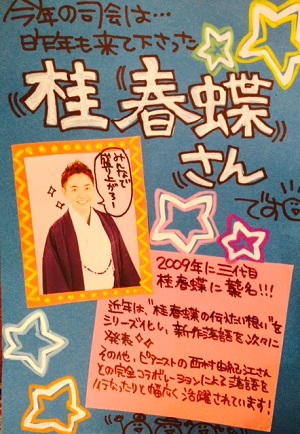 今年の司会は…
昨年も来て下さった
桂春蝶
さん
です
みんなで
盛り上がろー
2009年に三代目
桂春蝶に襲名!!!
近年は、"桂春蝶の伝えたい想い"を
シリーズ化し、新作落語を次々に
発表
その他、ピアニストの西村由紀江さん
との完全コラボレーションによる落語を
行なったりと幅広く活躍されています!